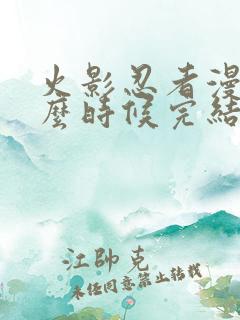 火影忍者漫
麼時候完結
江帥克
未經同意禁止轉載